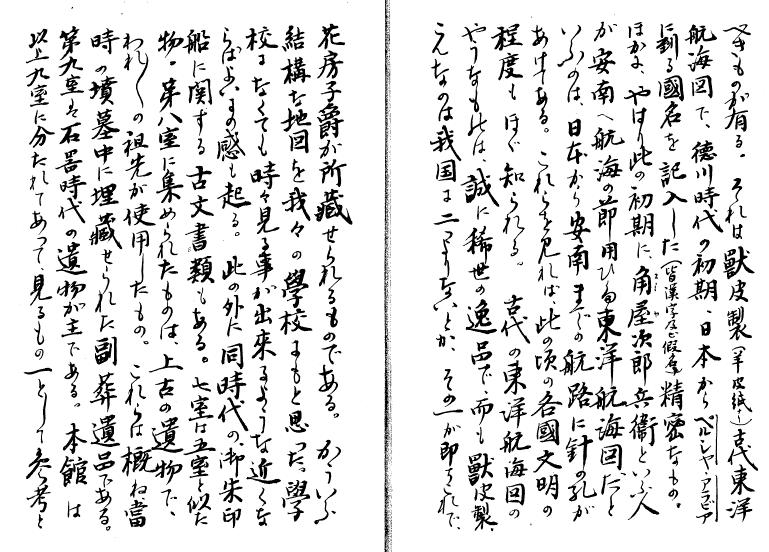 べきものが有る。それは獸皮製(羊皮紙)古代東洋
航海図で、徳川時代の初期、日本からペルシャ、アラビア
に到る國名を記入した(皆漢字及び假名)精密なもの。
ほかに、やはり此の初期に、角屋次郎兵衛といふ人
が安南へ航海の節用ひた東洋航海図だと
いふのは、日本から安南までの航路に針の孔が
あけてある。これらを見れば、此の頃の各國文明の
程度もほゞ知られる。古代の東洋航海図の
やうなものは、誠に稀世の逸品で、而も獸皮製、
こんなのは我国に二つよりないとか、その一が即ちこれで、
花房子爵が所藏せられるものである。かういふ
結構な地図を我々の學校にもと思った、學
校になくても時々見る事が出来るような近くな
らばよいの感も起る。此の外に同時代の、御朱印
船に関する古文書類もある。七室は五室と似た
物。第八室に集められたものは、上古の遺物で、
われ〱の祖先が使用したもの。これらは概ね當
時の墳墓中に埋藏せられた副葬遺品である。
第九室は石器時代の遺物が主である。本館は
以上九室に分たれてあって、見るもの一として参考と